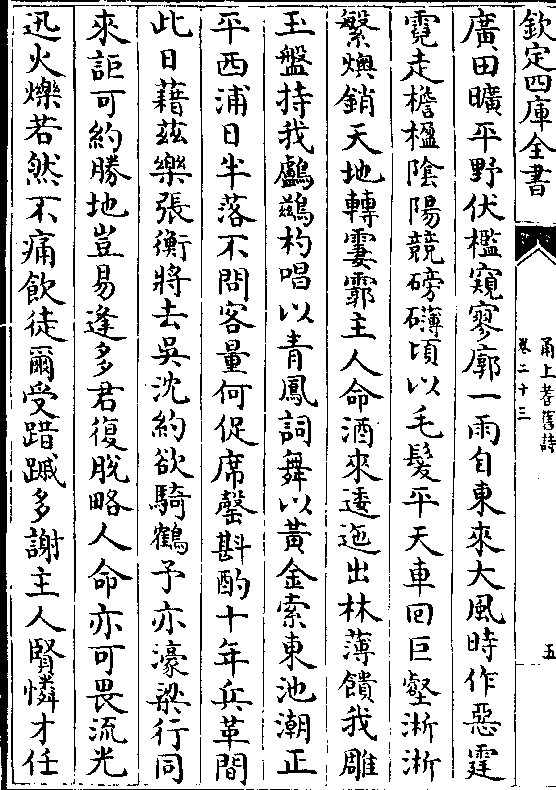 欽定四庫全書
甬上耆舊詩
卷二十三
五
廣田曠平野伏檻窺寥廓一雨自東來大風時作惡霆
霓走檐楹陰陽競磅礴頃以毛髮平天車回巨壑淅淅
繁燠銷天地轉霎霏主人命酒來逶迤出林薄饋我雕
玉盤持我鸕鷀杓唱以青鳳詞舞以黃金索東池潮正
平西浦日半落不問客量何促席罄斟酌十年兵革間
此日藉茲樂張衡將去吳沈約欲騎鶴予亦濠梁行同
來詎可約勝地豈易逢多君復脫略人命亦可畏流光
迅火爍若然不痛飲徒爾受踖蹙多謝主人賢憐才任